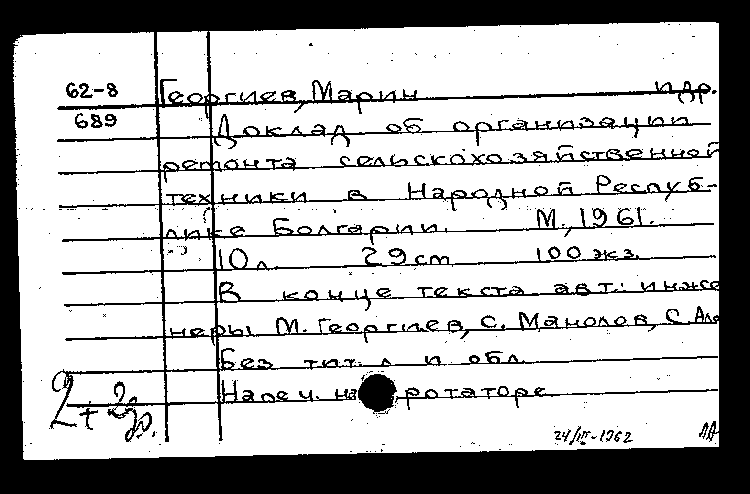 62-8 Георгиев, Марин и др.
689 Доклад об организации
ремонта сельскохозяйственной
техники в Народной Респуб-
лике Болгарии. М., 1961.
10 л. 29 cm 100 экз.
В конце текста авт.: инже
неры М. Георгиев, С. Манолов, С. Але
Без тит. л и обл.
Напеч. на ротаторе
2 + 2др.
24/III-1962